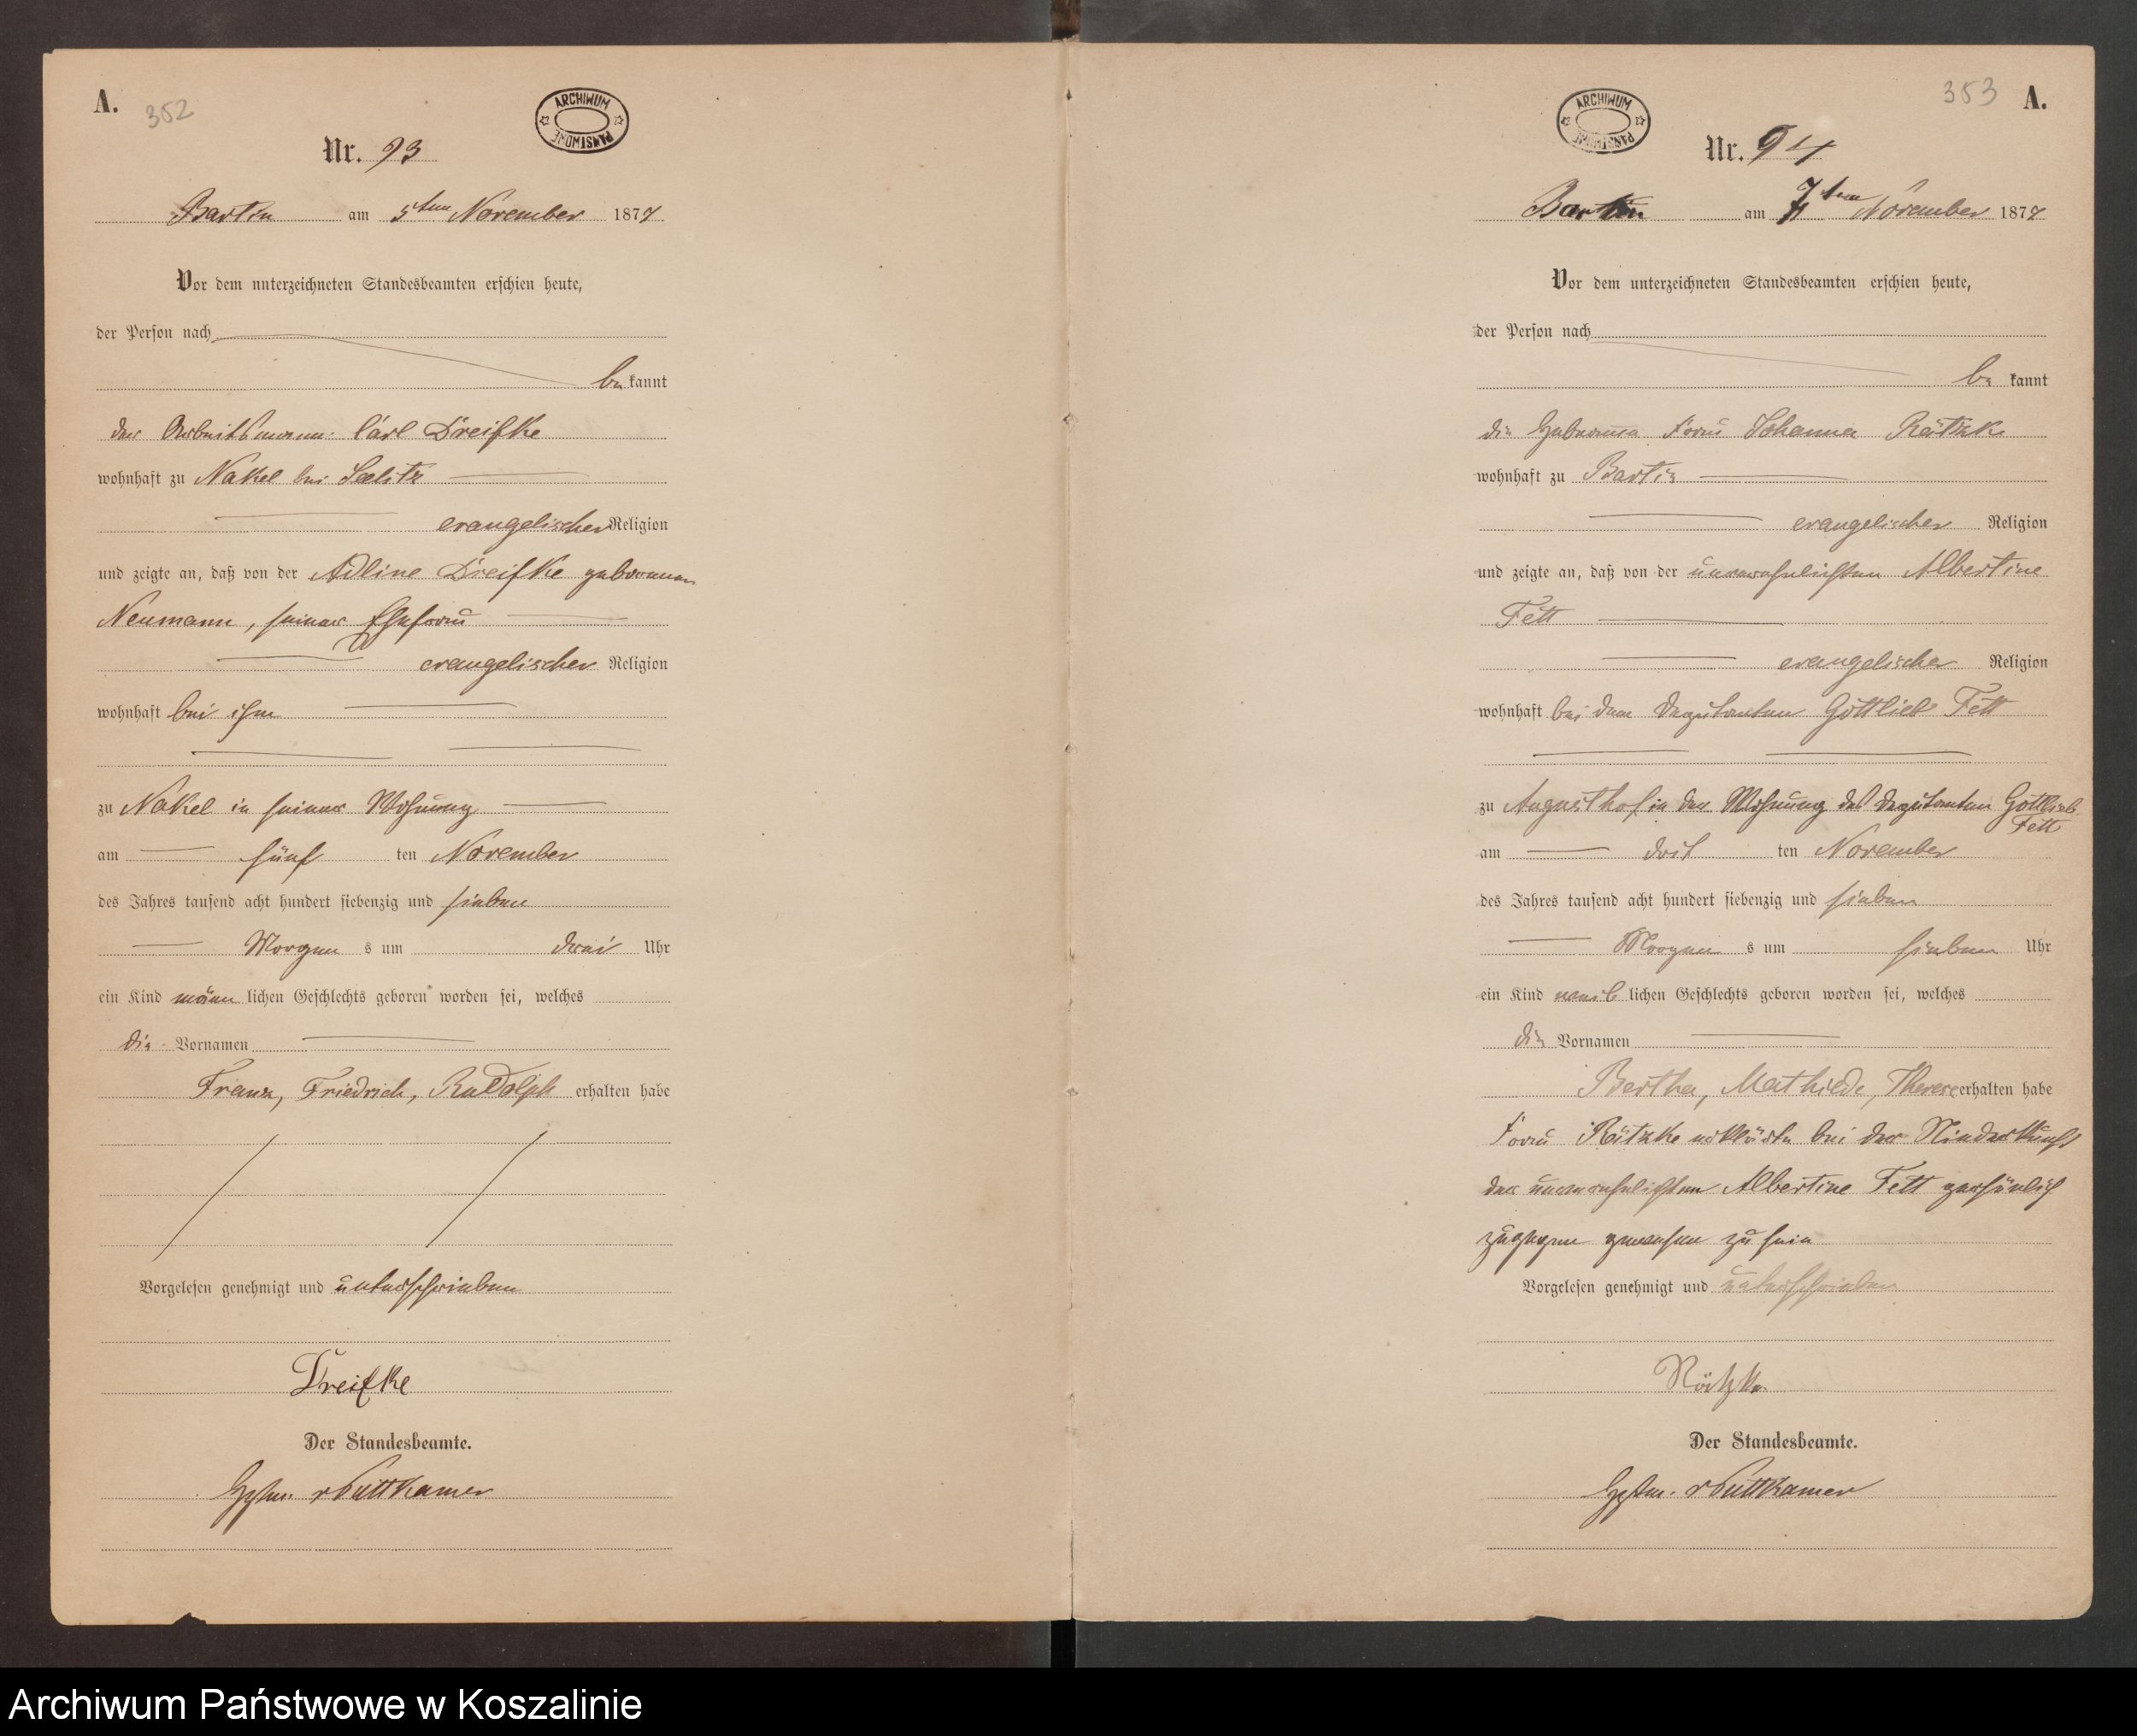 A.
352
ARCHIWUM PAŃSTWOWE
Nr. 93
Bartin am 5ten November 1877
Vor dem unterzeichneten Standesbeamten erschien heute,
der Person nach
be kannt
der Arbeitsmann Carl Dreifke
wohnhaft zu Nakel bei Seelitz
evangelischer Religion
und zeigte an, daß von der Adline Dreifke geborenen
Neumann, seiner Ehefrau
evangelischer Religion
wohnhaft bei ihm
zu Nakel in seiner Wohnung
am fünf ten November
des Jahres tausend acht hundert siebenzig und sieben
Morgen s um drei Uhr
ein Kind männ lichen Geschlechts geboren worden sei, welches
die Vornamen
Franz, Friedrich, Rudolph erhalten habe
Vorgelesen genehmigt und unterschrieben
Dreifke
Der Standesbeamte.
Hptm. v Puttkamer
353
A.
ARCHIWUM PAŃSTWOWE
Nr. 94
Bartin am 7ten November 1877
Vor dem unterzeichneten Standesbeamten erschien heute,
der Person nach
be kannt
die Hebamme Frau Johanna Rätzke
wohnhaft zu Bartin
evangelischer Religion
und zeigte an, daß von der unverehelichten Albertine
Fett
evangelischer Religion
wohnhaft bei dem Deputanten Gottlieb Fett
zu Augusthof in der Wohnung des Deputanten Gottlieb
Fett
am drit ten November
des Jahres tausend acht hundert siebenzig und sieben
Morgen s um sieben Uhr
ein Kind weib lichen Geschlechts geboren worden sei, welches
die Vornamen
Bertha, Mathilde, Therese erhalten habe
Frau Rätzke erklärte bei der Niederkunft
der unverehelichten Albertine Fett persönlich
zugegen gewesen zu sein
Vorgelesen genehmigt und unterschrieben
Rätzke
Der Standesbeamte.
Hptm. v Puttkamer
Archiwum Państwowe w Koszalinie